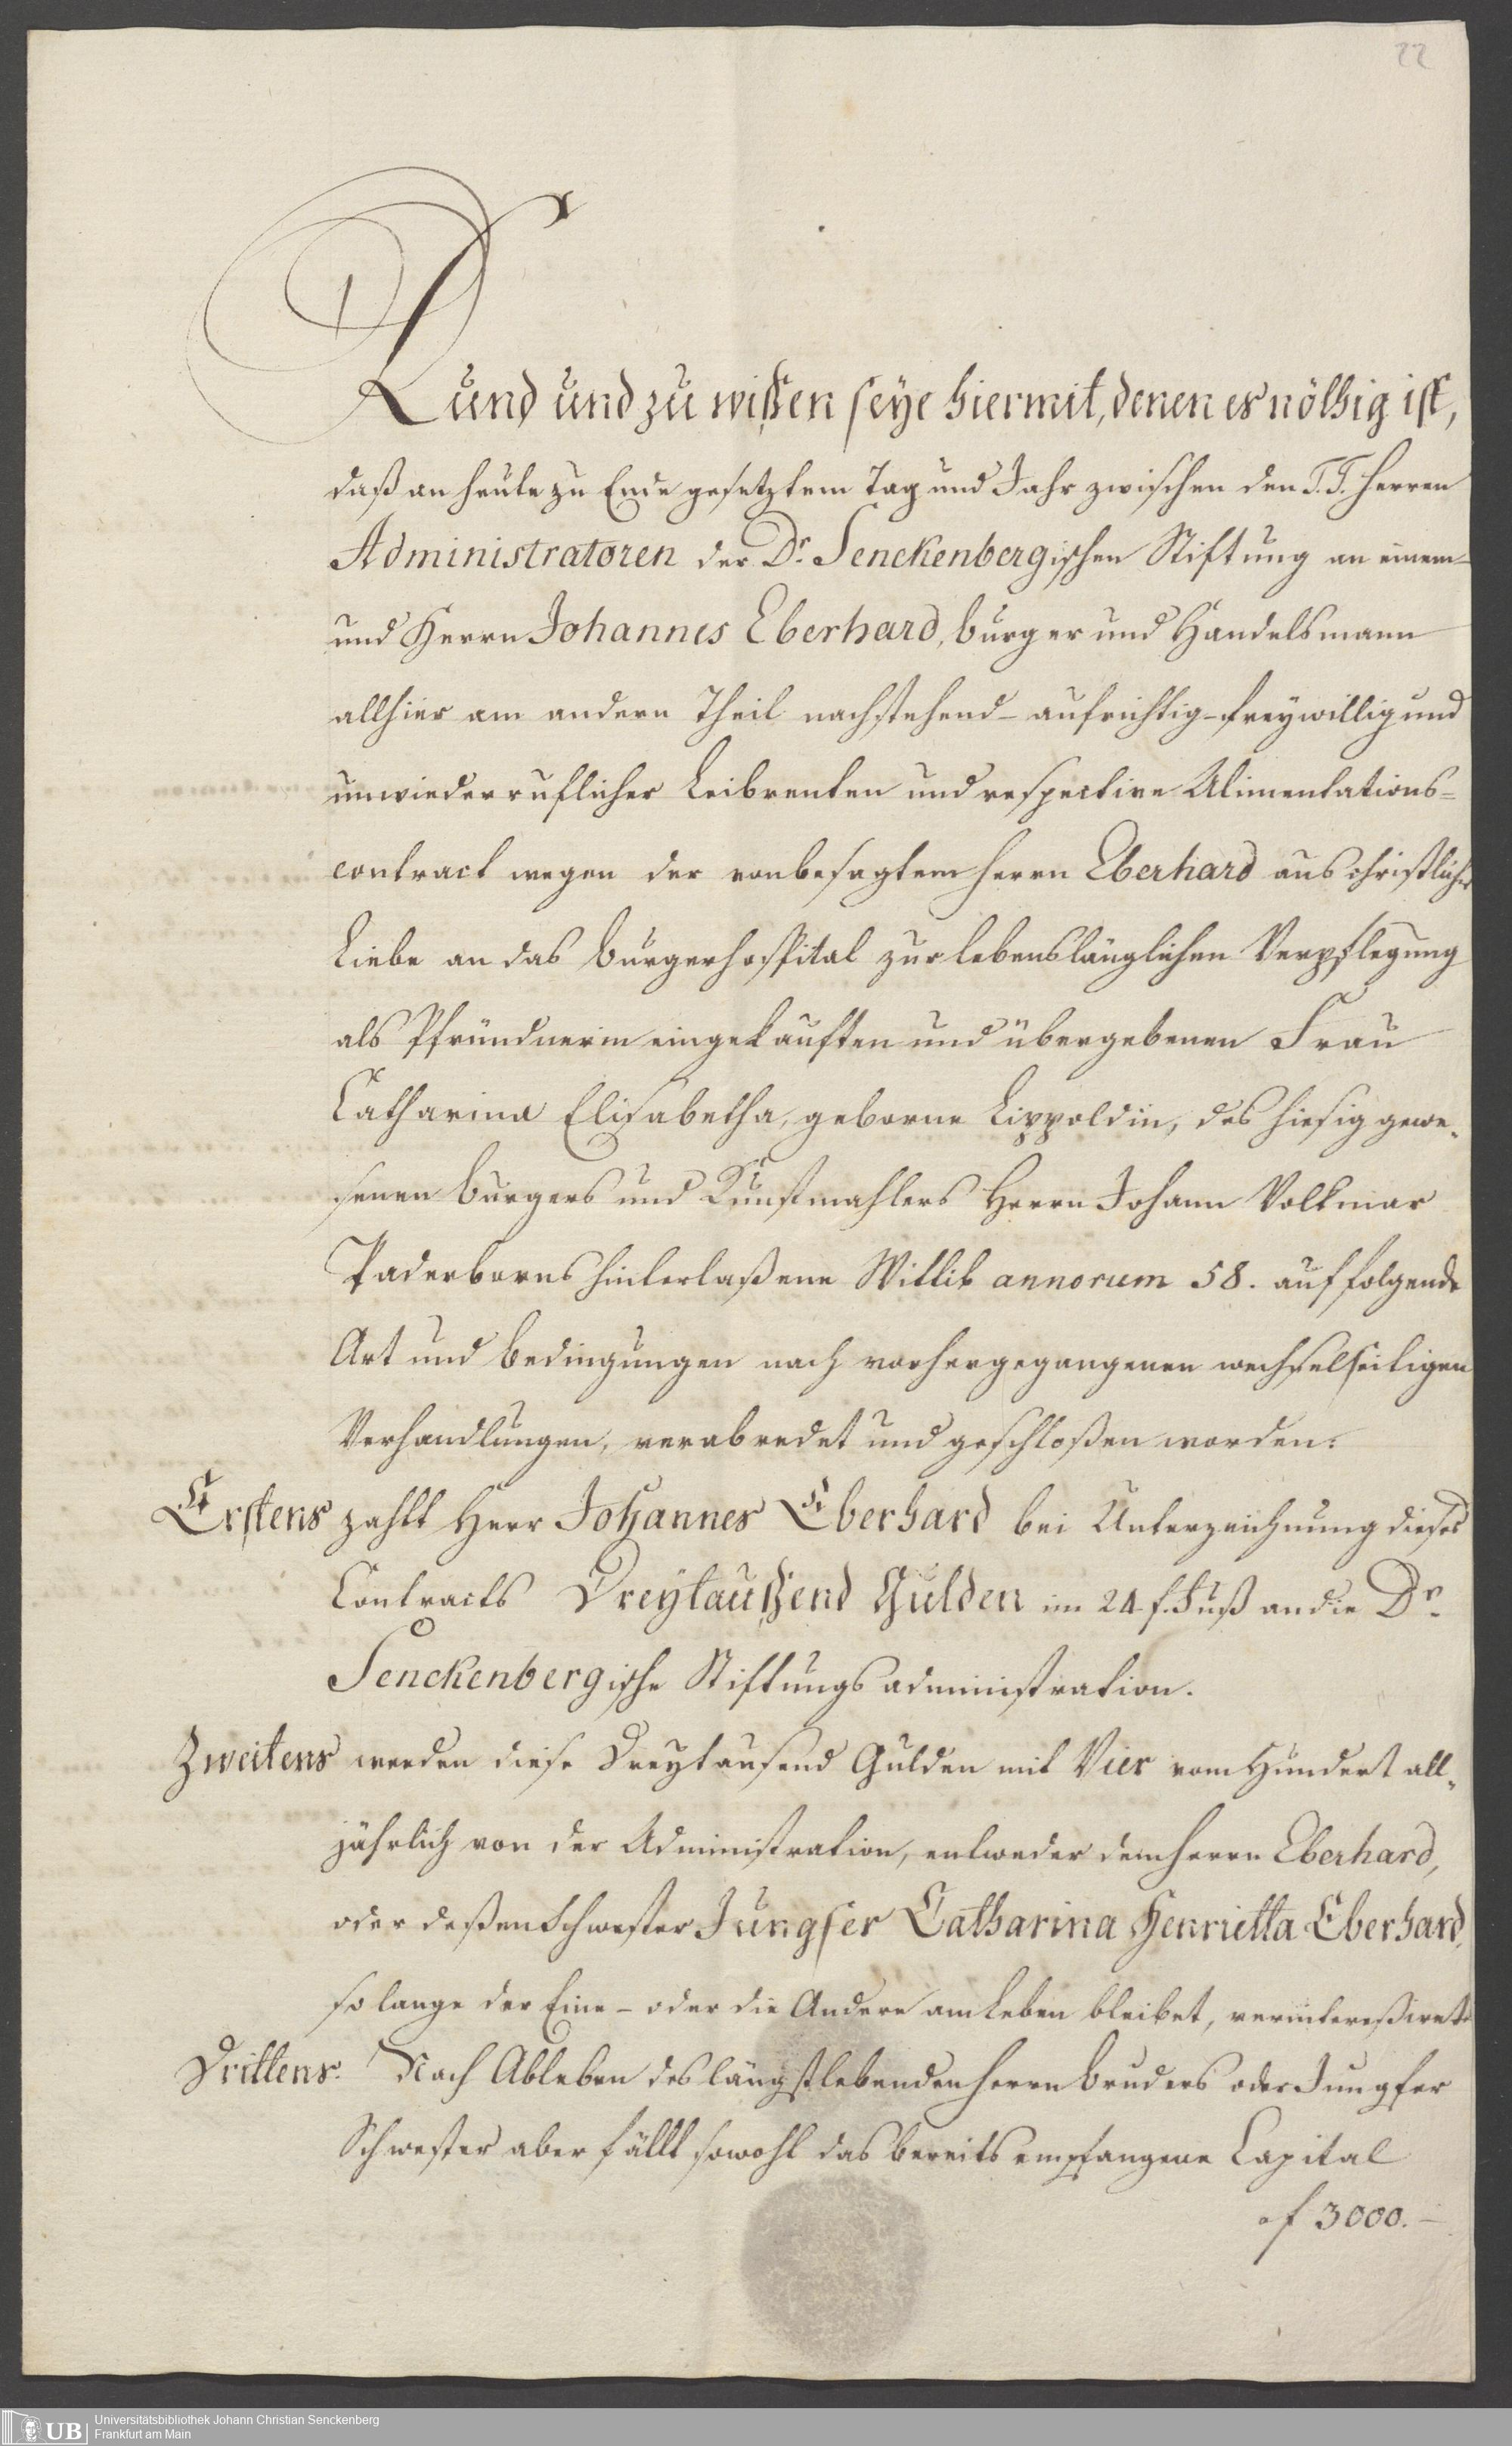 22
Kund und zu wißen seye hiermit, denen es nöthig ist,
daß an heute zu Ende gesetztem Tag und Jahr zwischen den T. T. Herren
Administratoren der Dr. Senckenbergischen Stiftung an einem-
und Herrn Johannes Eberhard, burger und Handelsmann
allhier am andern Theil nachstehend- aufrichtig- freywillig und
unwiederruflicher Leibrenten und respective Alimentations=
contract wegen der von besagtem Herrn Eberhard aus christlicher
Liebe an das burgerhospital zur lebenslänglichen Verpflegung
als Pfründnerin eingekauften und übergebenen Frau
Catharina Elisabetha, geborne Lippoldin, des hiesig gewe-
senen burgers und Kunstmahlers Herrn Johann Volkmar
Paderborns hinterlaßene Wittib annorum 58. auf folgende
Art und bedingungen nach vorhergegangenen wechselseitigen
Verhandlungen, verabredet und geschloßen worden:
Erstens zahlt Herr Johannes Eberhard bei Unterzeichnung dieses
Contracts Dreytaußend Gulden im 24 f. Fuß an die Dr.
Senckenbergische Stiftungsadministration.
Zweitens werden diese Dreytausend Gulden mit Vier vom Hundert all-
jährlich von der Administration, entweder dem Herrn Eberhard,
oder deßen Schwester Jungfer Catharina Henrietta Eberhard,
so lange der Eine- oder die Andere am Leben bleibet, verintereßiret.
Drittens. Nach Ableben des längstlebenden Herrn bruders oder Jungfer
Schwester aber fällt sowohl das bereits empfangene Capital
of 3000.-
UB
Universitätsbibliothek Johann Christian Senckenberg
Frankfurt am Main